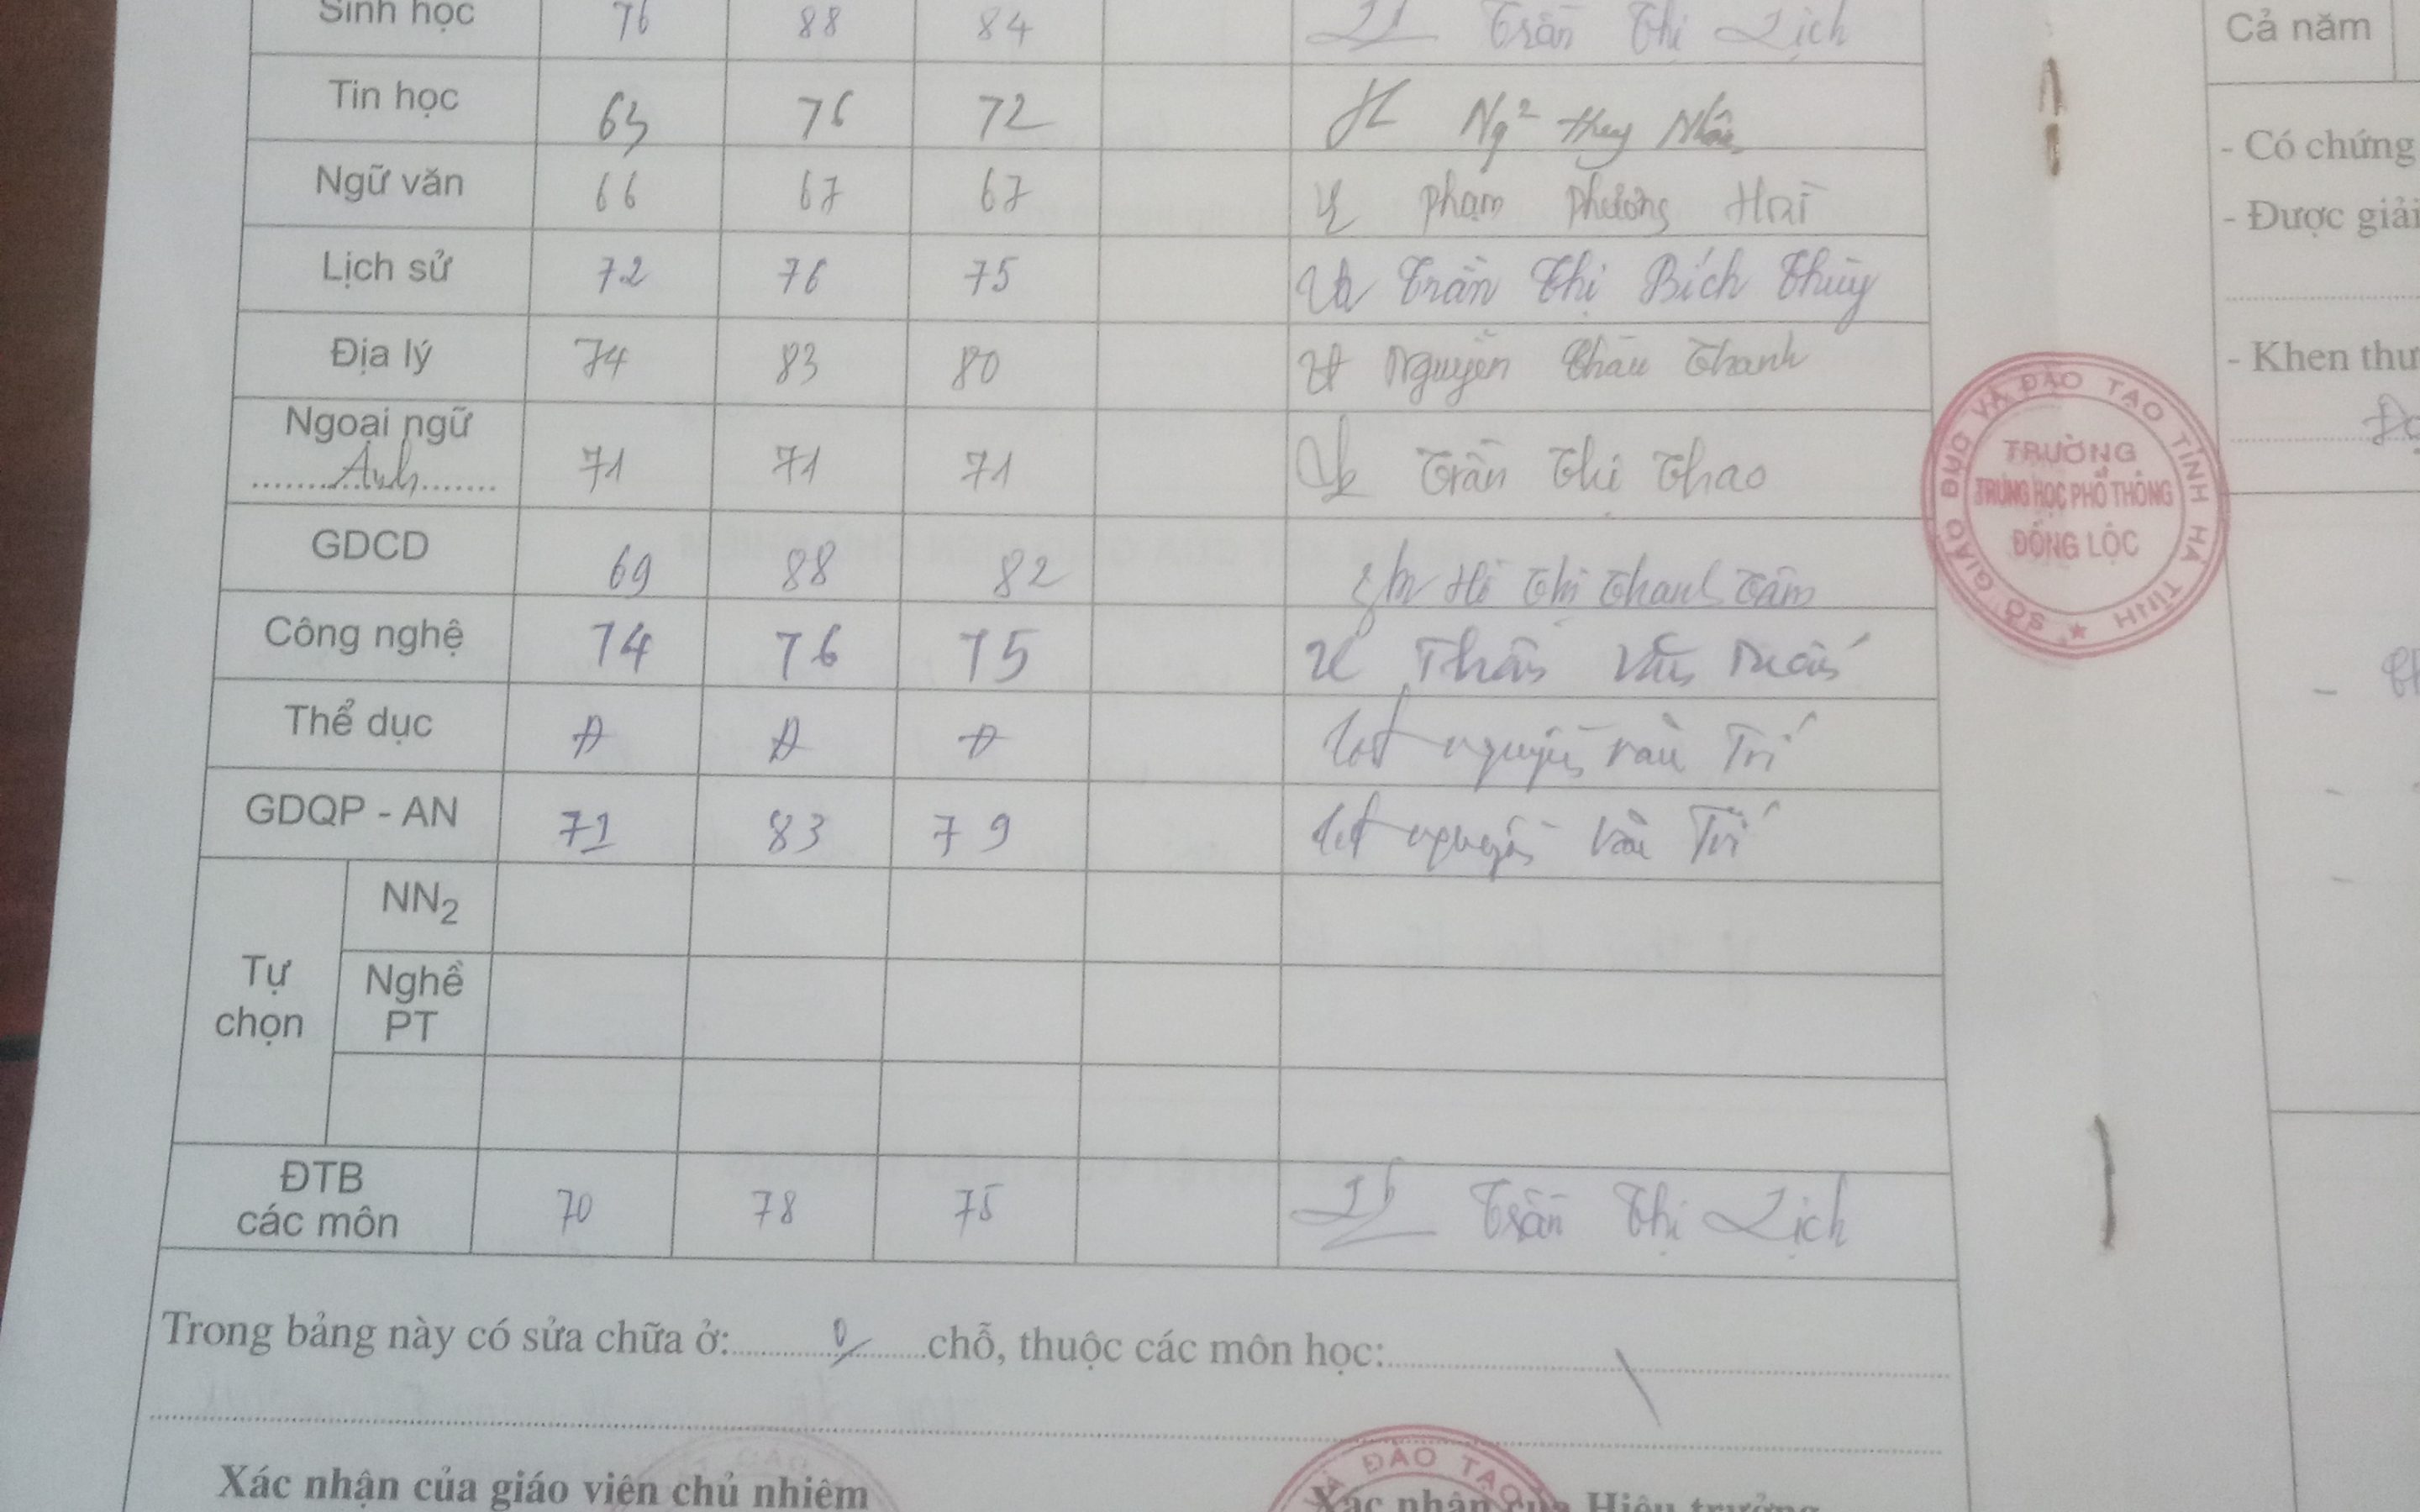 Sinh học 76 88 84 Trần Thị Lịch
Tin học 63 76 72 Ng² Thuy
Ngữ văn 66 67 67 Phạm Phương Hài
Lịch sử 72 76 75 Trần Thị Bích Thùy
Địa lý 74 83 80 Nguyễn Châu Thanh
Ngoại ngữ
Anh 71 71 71 Trần Thị Thao
GDCD 69 88 82 Hồ Thị Thanh Tâm
Công nghệ 74 76 75 Thân Văn
Thể dục Đ Đ Đ Nguyễn Văn Trí
GDQP - AN 71 83 79 Nguyễn Văn Trí
Tự chọn
NN2
Nghề PT
ĐTB
các môn 70 78 75 Trần Thị Lịch
Trong bảng này có sửa chữa ở: 0 chỗ, thuộc các môn học:
Xác nhận của giáo viên chủ nhiệm
Xác nhận của Hiệu trưởng
VÀ ĐÀO TẠO
SỞ GIÁO DỤC VÀ ĐÀO TẠO TỈNH HÀ TĨNH
TRƯỜNG
TRUNG HỌC PHỔ THÔNG
ĐỒNG LỘC
Cả năm
- Có chứng
- Được giải
- Khen thư